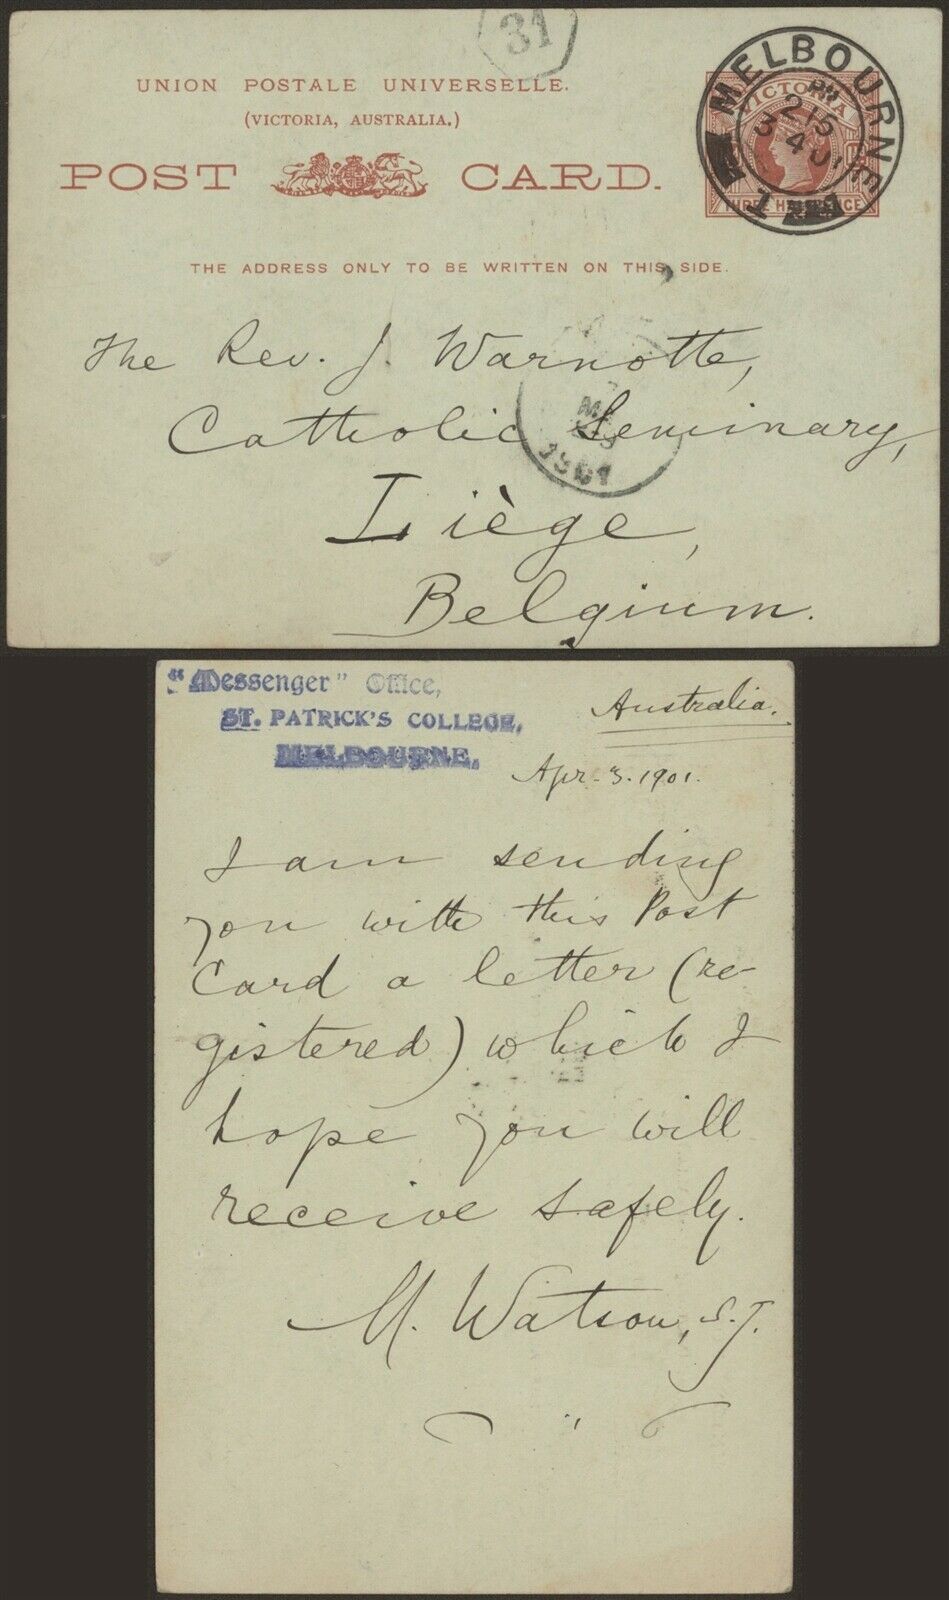 31
UNION POSTALE UNIVERSELLE.
(VICTORIA, AUSTRALIA.)
POST CARD.
MELBOURNE
VICTORIA
PM
2 15
3 4 01
THREE HALF PENCE
THE ADDRESS ONLY TO BE WRITTEN ON THIS SIDE.
The Rev. J. Warnotte,
Catholic Seminary,
Liège,
Belgium.
1901
"Messenger" Office,
ST. PATRICK'S COLLEGE,
MELBOURNE.
Australia.
Apr. 3. 1901.
I am sending
you with this Post
Card a letter (re-
gistered) which I
hope you will
receive safely.
M. Watson, S.J.